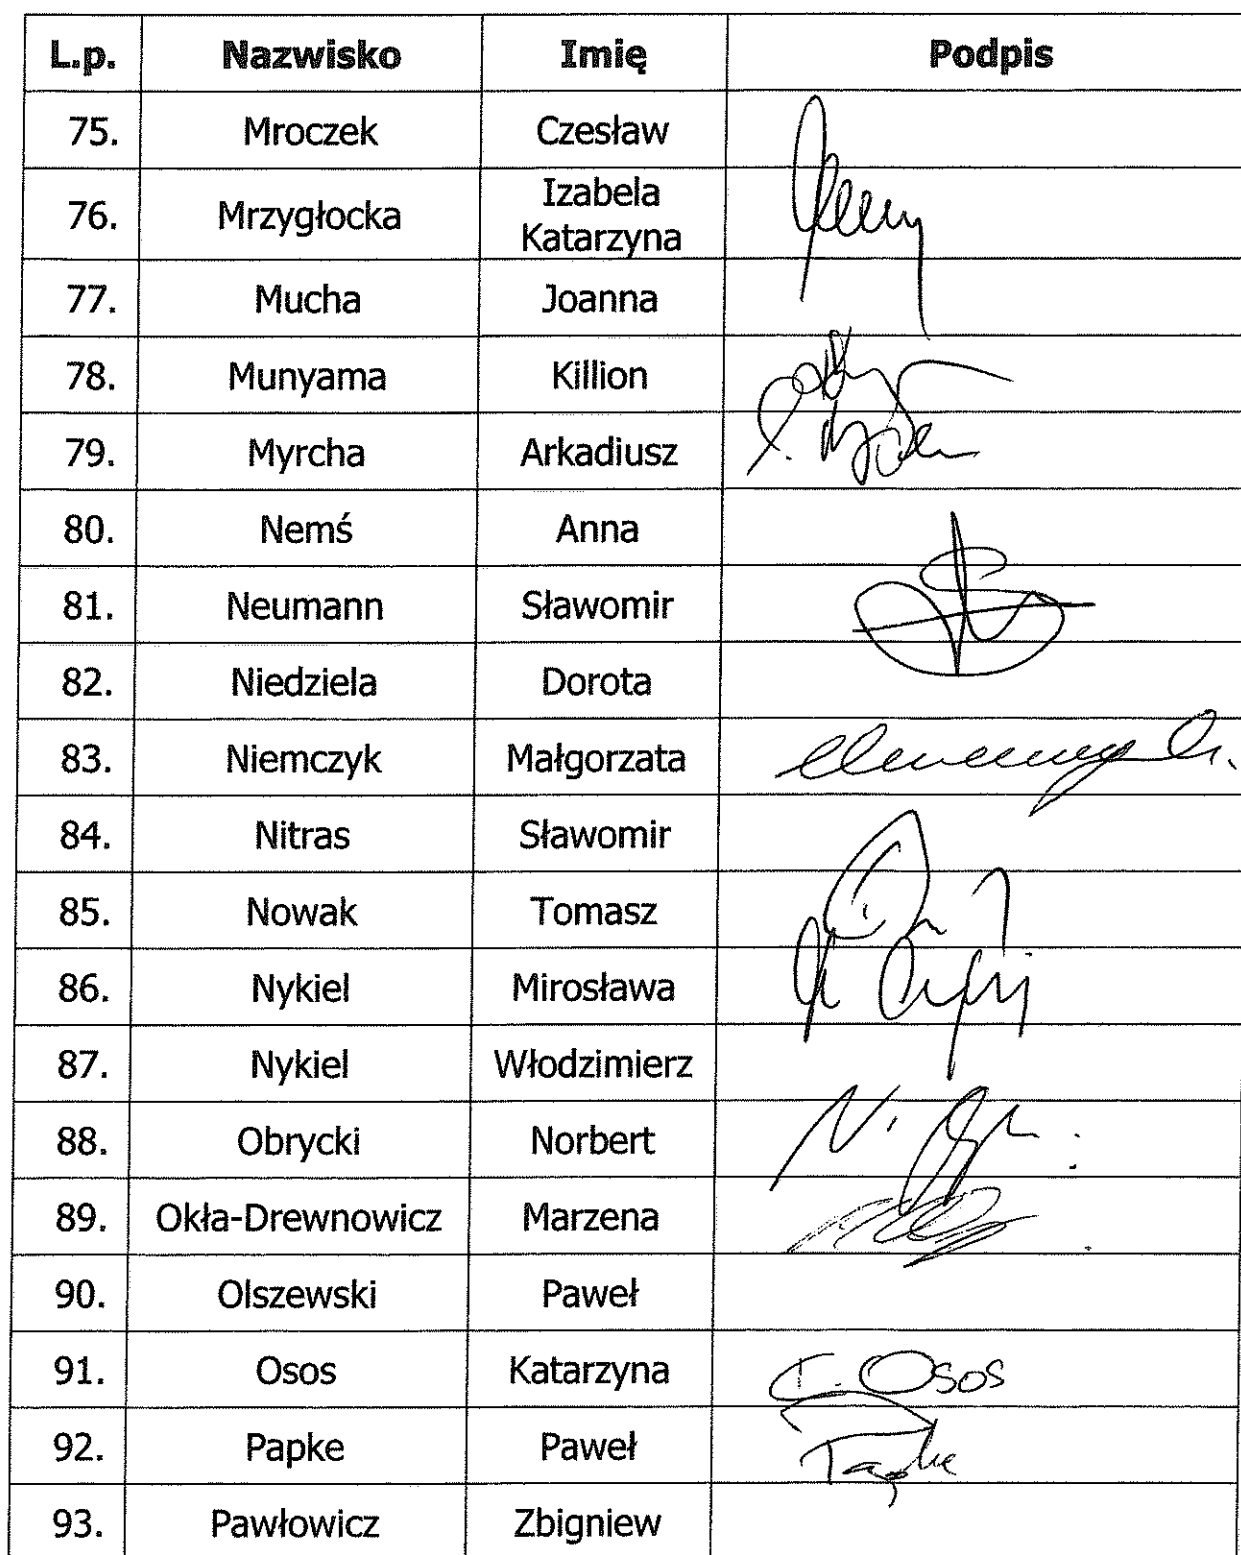 L.p. Nazwisko Imię Podpis
75. Mroczek Czesław
76. Mrzygłocka Izabela
Katarzyna
77. Mucha Joanna
78. Munyama Killion
79. Myrcha Arkadiusz
80. Nemś Anna
81. Neumann Sławomir
82. Niedziela Dorota
83. Niemczyk Małgorzata
84. Nitras Sławomir
85. Nowak Tomasz
86. Nykiel Mirosława
87. Nykiel Włodzimierz
88. Obrycki Norbert
89. Okła-Drewnowicz Marzena
90. Olszewski Paweł
91. Osos Katarzyna Osos
92. Papke Paweł Papke
93. Pawłowicz Zbigniew